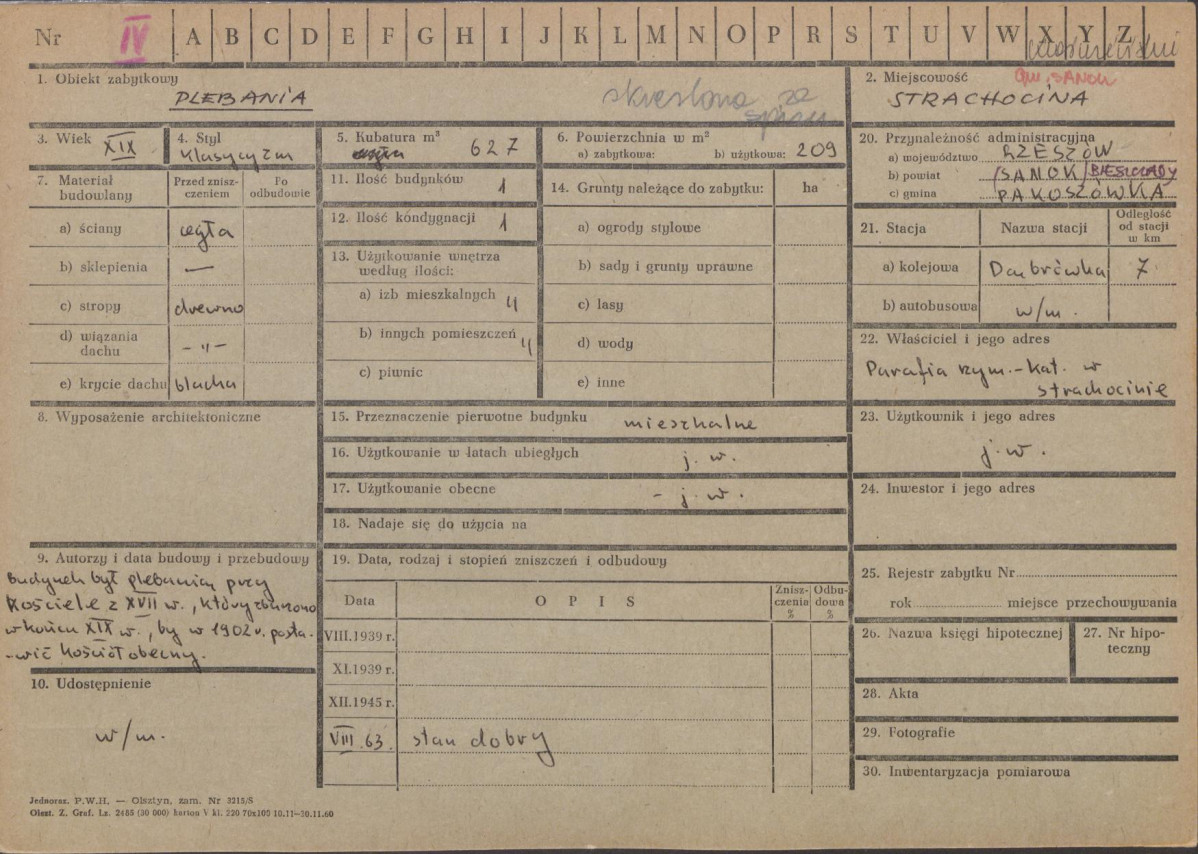 Nr IV A B C D E F G H I J K L M N O P R S T U V W X Y Z
1. Obiekt zabytkowy
PLEBANIA
skreślona ze
spisu
2. Miejscowość
gm. SANOK
STRACHOCINA
3. Wiek XIX
4. Styl
klasycyzm
5. Kubatura m³
627
6. Powierzchnia w m²
a) zabytkowa: b) użytkowa: 209
20. Przynależność administracyjna
a) województwo RZESZÓW
b) powiat SANOK BIESZCZADY
c) gmina PAKOSZÓWKA
7. Materiał budowlany
Przed zniszczeniem
Po odbudowie
a) ściany cegła
b) sklepienia —
c) stropy drewno
d) wiązania dachu - „ -
e) krycie dachu blacha
11. Ilość budynków 1
12. Ilość kóndygnacji 1
13. Użytkowanie wnętrza
według ilości:
a) izb mieszkalnych 4
b) innych pomieszczeń 4
c) piwnic
14. Grunty należące do zabytku: ha
a) ogrody stylowe
b) sady i grunty uprawne
c) lasy
d) wody
e) inne
21. Stacja Nazwa stacji
Odległość
od stacji
w km
a) kolejowa Dąbrówka 7
b) autobusowa w/m.
22. Właściciel i jego adres
Parafia rzym.-kat. w
Strachocinie
8. Wyposażenie architektoniczne
15. Przeznaczenie pierwotne budynku mieszkalne
16. Użytkowanie w latach ubiegłych j. w.
17. Użytkowanie obecne - j. w.
18. Nadaje się do użycia na
23. Użytkownik i jego adres
j. w.
24. Inwestor i jego adres
9. Autorzy i data budowy i przebudowy
Budynek był plebanią przy
kościele z XVII w., który zburzono
w końcu XIX w., by w 1902 r. posta-
-wić kościół obecny.
10. Udostępnienie
w/m.
19. Data, rodzaj i stopień zniszczeń i odbudowy
Data OPIS
Znisz-
czenia
%
Odbu-
dowa
%
VIII.1939 r.
XI.1939 r.
XII.1945 r.
VIII.63. stan dobry
25. Rejestr zabytku Nr
rok miejsce przechowywania
26. Nazwa księgi hipotecznej
27. Nr hipo-
teczny
28. Akta
29. Fotografie
30. Inwentaryzacja pomiarowa
Jednoraz. P.W.H. — Olsztyn, zam. Nr 3215/S
Olszt. Z. Graf. Lz. 2485 (30 000) karton V kl. 220 70x100 10.11—30.11.60